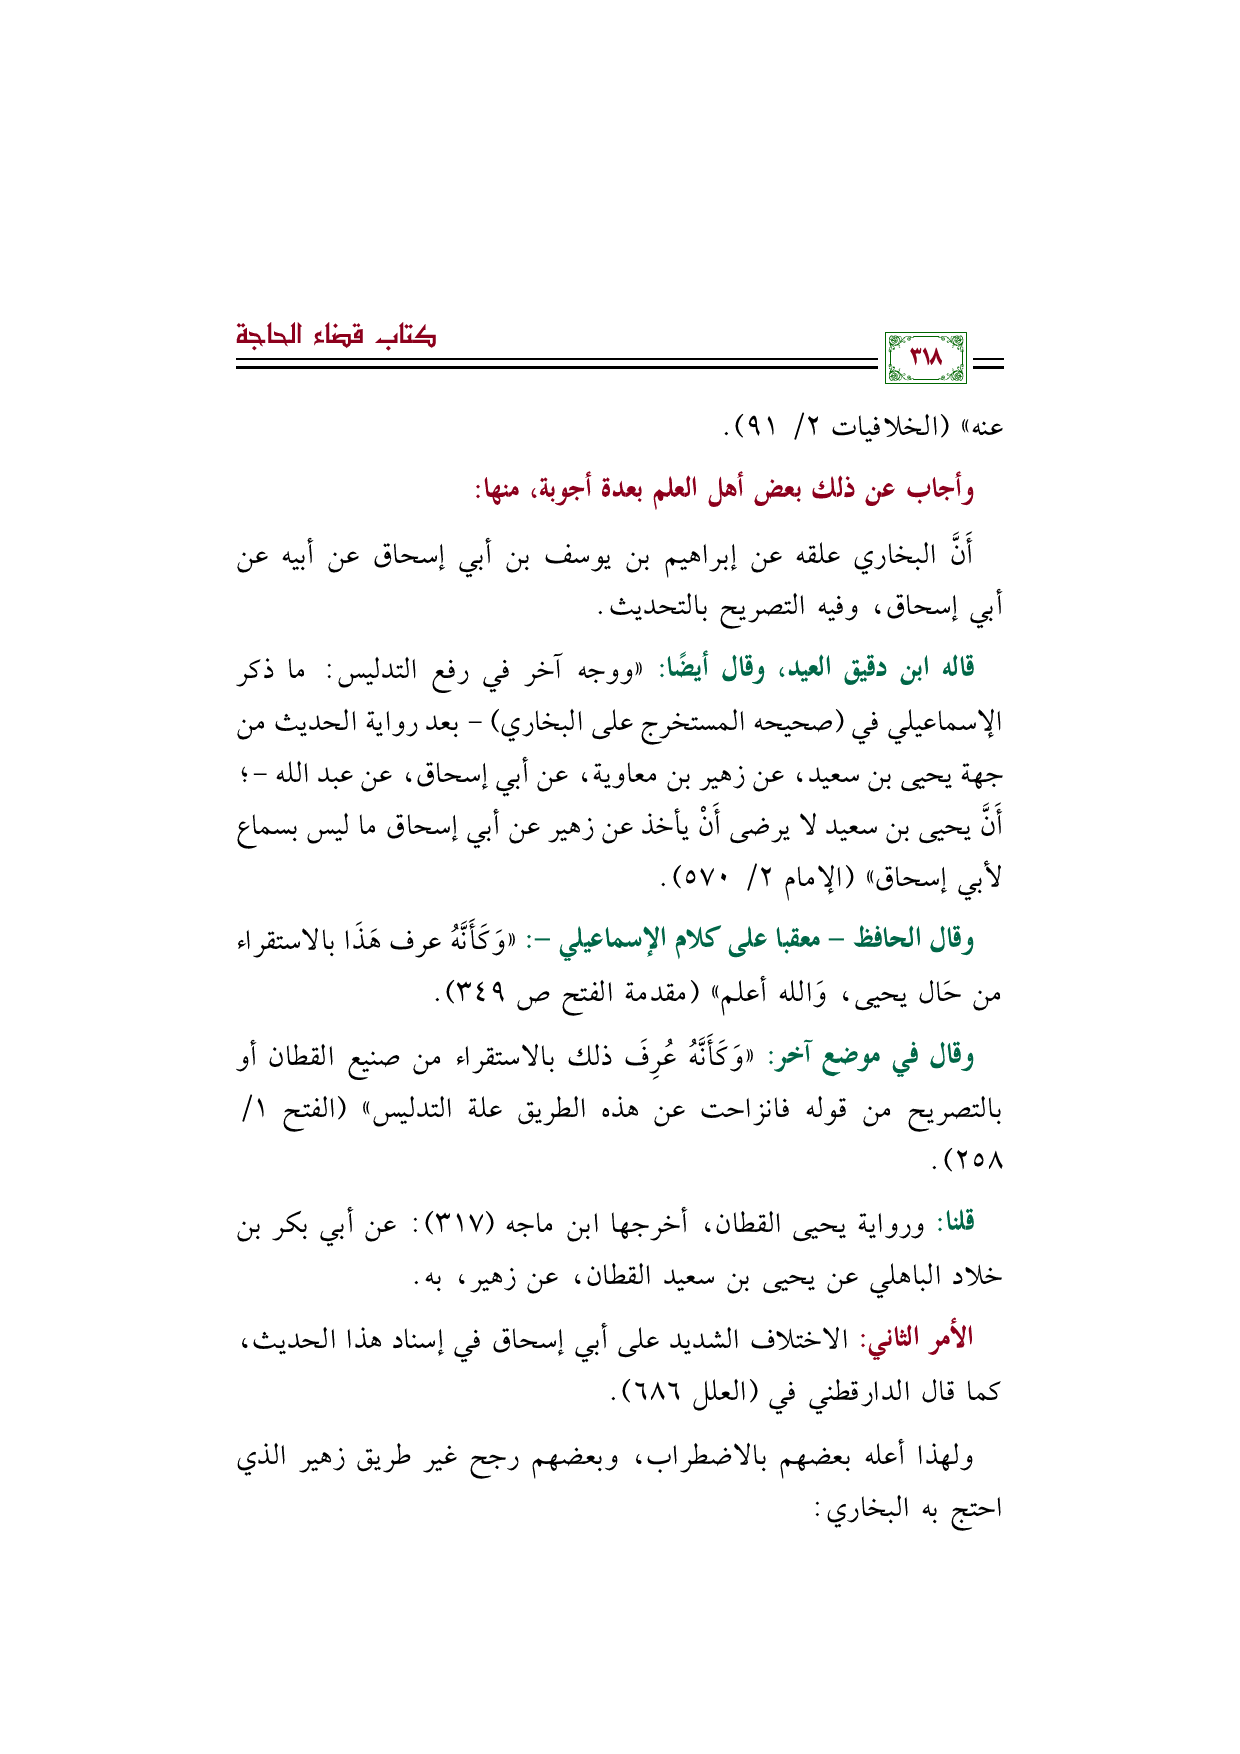 كتاب قضاء الحاجة
٣١٨
عنه» (الخلافيات ٢/ ٩١).
وأجاب عن ذلك بعض أهل العلم بعدة أجوبة، منها:
أَنَّ البخاري علقه عن إبراهيم بن يوسف بن أبي إسحاق عن أبيه عن
أبي إسحاق، وفيه التصريح بالتحديث.
قاله ابن دقيق العيد، وقال أيضًا: «ووجه آخر في رفع التدليس: ما ذكر
الإسماعيلي في (صحيحه المستخرج على البخاري) - بعد رواية الحديث من
جهة يحيى بن سعيد، عن زهير بن معاوية، عن أبي إسحاق، عن عبد الله -؛
أَنَّ يحيى بن سعيد لا يرضى أَنْ يأخذ عن زهير عن أبي إسحاق ما ليس بسماع
لأبي إسحاق» (الإمام ٢/ ٥٧٠).
وقال الحافظ - معقبا على كلام الإسماعيلي -: «وَكَأَنَّهُ عرف هَذَا بالاستقراء
من حَال يحيى، وَالله أعلم» (مقدمة الفتح ص ٣٤٩).
وقال في موضع آخر: «وَكَأَنَّهُ عُرِفَ ذلك بالاستقراء من صنيع القطان أو
بالتصريح من قوله فانزاحت عن هذه الطريق علة التدليس» (الفتح ١/
٢٥٨).
قلنا: ورواية يحيى القطان، أخرجها ابن ماجه (٣١٧): عن أبي بكر بن
خلاد الباهلي عن يحيى بن سعيد القطان، عن زهير، به.
الأمر الثاني: الاختلاف الشديد على أبي إسحاق في إسناد هذا الحديث،
كما قال الدارقطني في (العلل ٦٨٦).
ولهذا أعله بعضهم بالاضطراب، وبعضهم رجح غير طريق زهير الذي
احتج به البخاري: